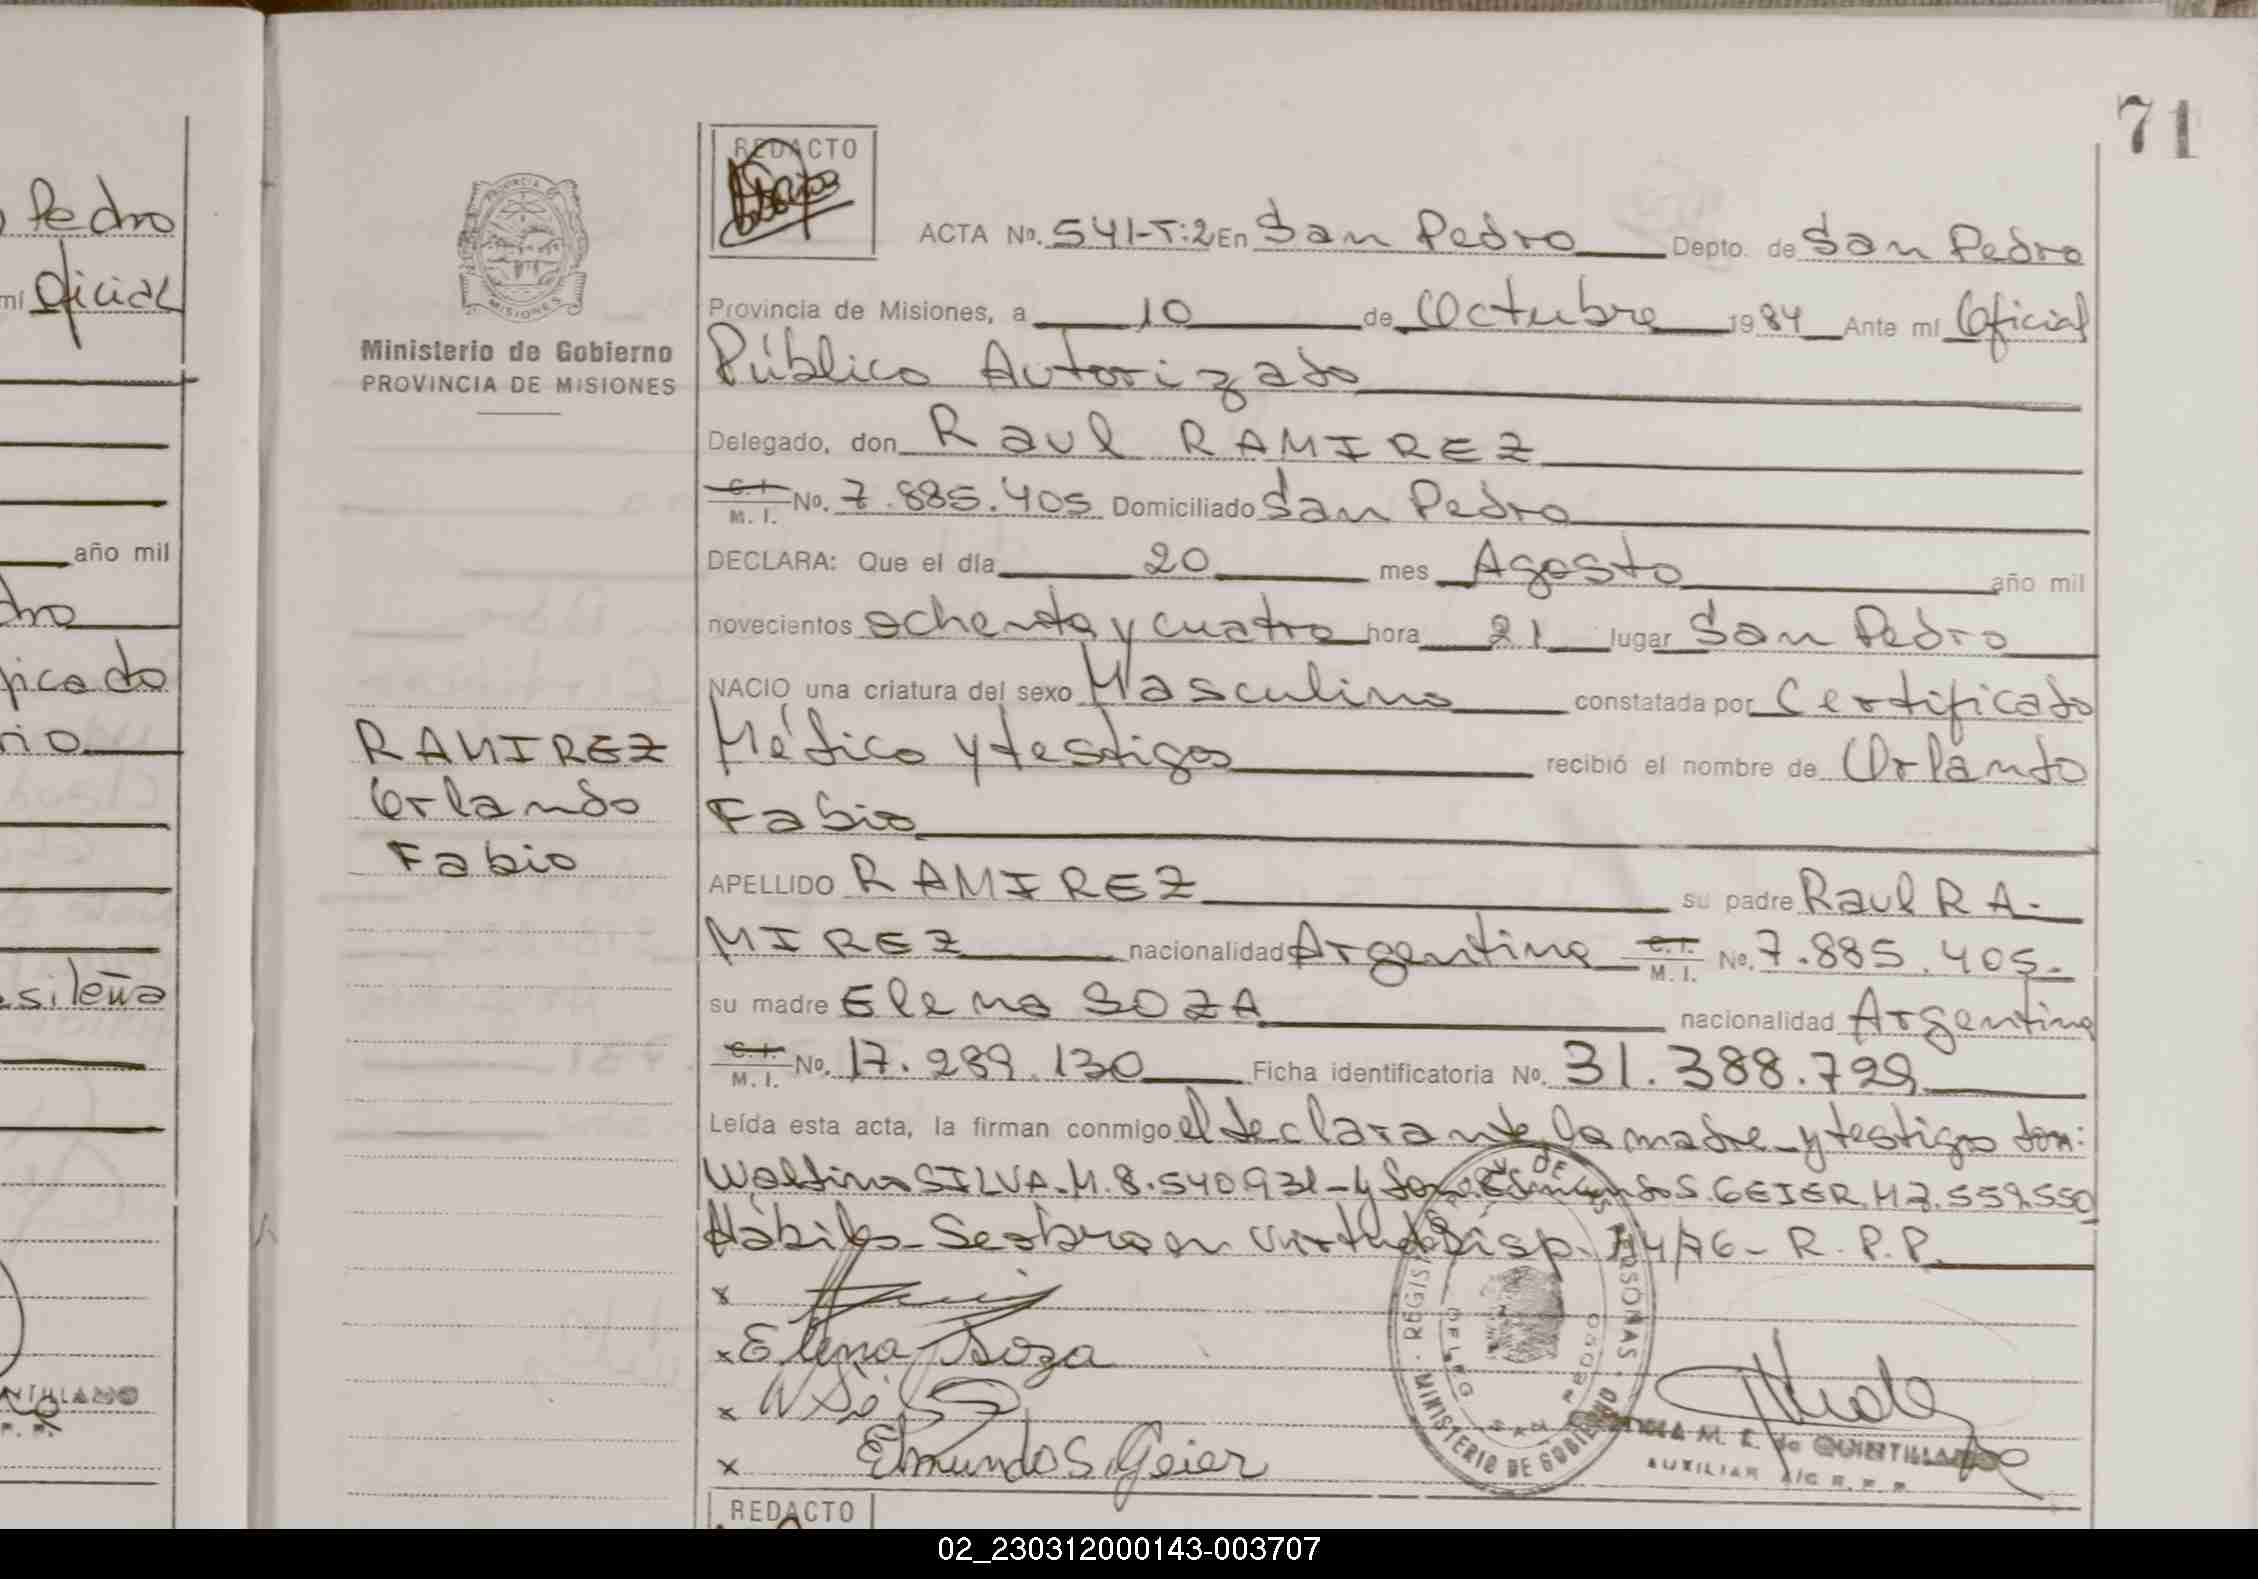 71
Pedro
mí Oficial
año mil
dro
ficado
rio
sileña
PROVINCIA DE
MISIONES
Ministerio de Gobierno
PROVINCIA DE MISIONES
RAMIREZ
Orlando
Fabio
REDACTO
ACTA No. 541-T:2 En San Pedro Depto. de San Pedro
Provincia de Misiones, a 10 de Octubre 1984 Ante mí Oficial
Público Autorizado
Delegado, don Raul RAMIREZ
C. I. M. I. No. 7.885.405 Domiciliado San Pedro
DECLARA: Que el día 20 mes Agosto año mil
novecientos ochenta y cuatro hora 21 lugar San Pedro
NACIO una criatura del sexo Masculino constatada por Certificado
Médico y testigos recibió el nombre de Orlando
Fabio
APELLIDO RAMIREZ su padre Raul RA-
MIREZ nacionalidad Argentina C. I. M. I. No. 7.885.405.-
su madre Elena SOZA nacionalidad Argentina
C. I. M. I. No. 17.289.130 Ficha identificatoria No. 31.388.729
Leída esta acta, la firman conmigo el declarante, la madre y testigos don:
SILVA. M. 8.540931- y don Edmundo S. GEIER. M 7.559.550
Hábiles- Se labra en virtud Disp. - R. P. P.
x
x Elena Soza
x
x Edmundo S. Geier
MINISTERIO DE GOBIERNO
SAN PEDRO
M. E. de QUINTILLANO
AUXILIAR A/C R. P. P.
REDACTO
02_230312000143-003707